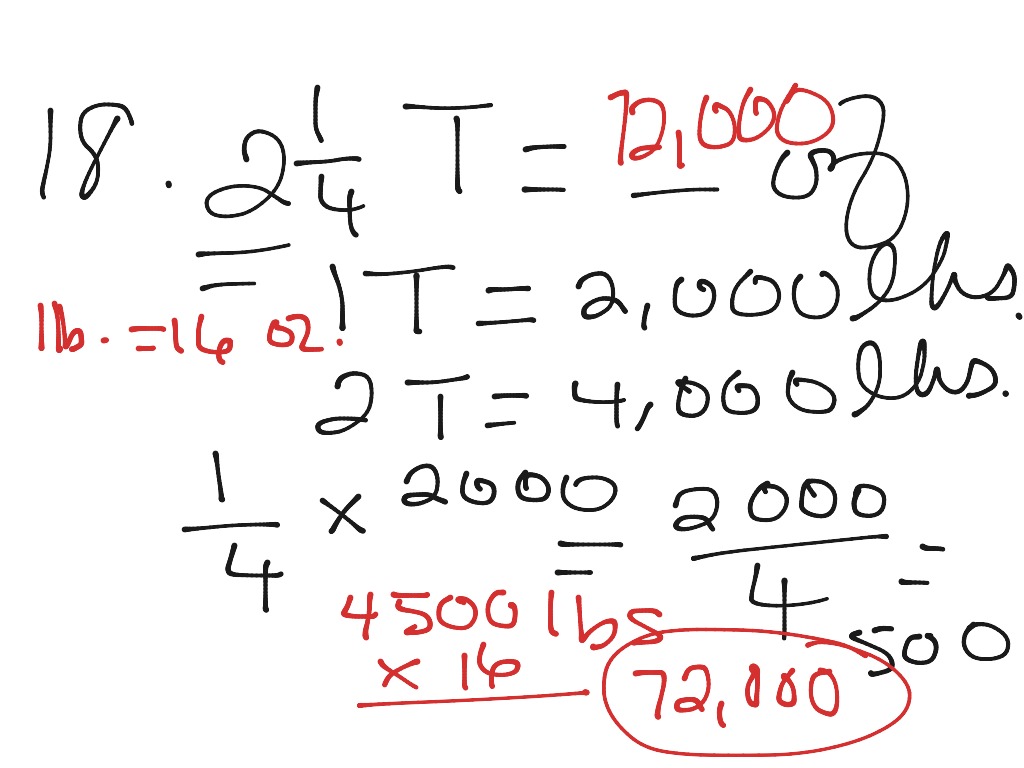 18. 2 1/4 T = 72,000 oz
1T = 2,000 lbs.
1lb. = 16 oz.
2T = 4,000 lbs.
1/4 x 2000 = 2000/4 = 500
4500 lbs
x 16
72,000